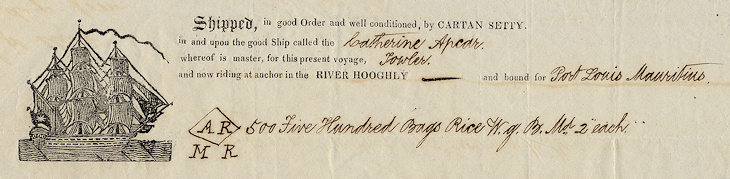 Shipped, in good Order and well conditioned, by CARTAN SETTY.
in and upon the good Ship called the Catherine Apcar.
whereof is master, for this present voyage, Fowler.
and now riding at anchor in the RIVER HOOGHLY and bound for Port Louis Mauritius.
A R 500 Five Hundred Bags Rice W. g. B. Mds 2 each.
M R